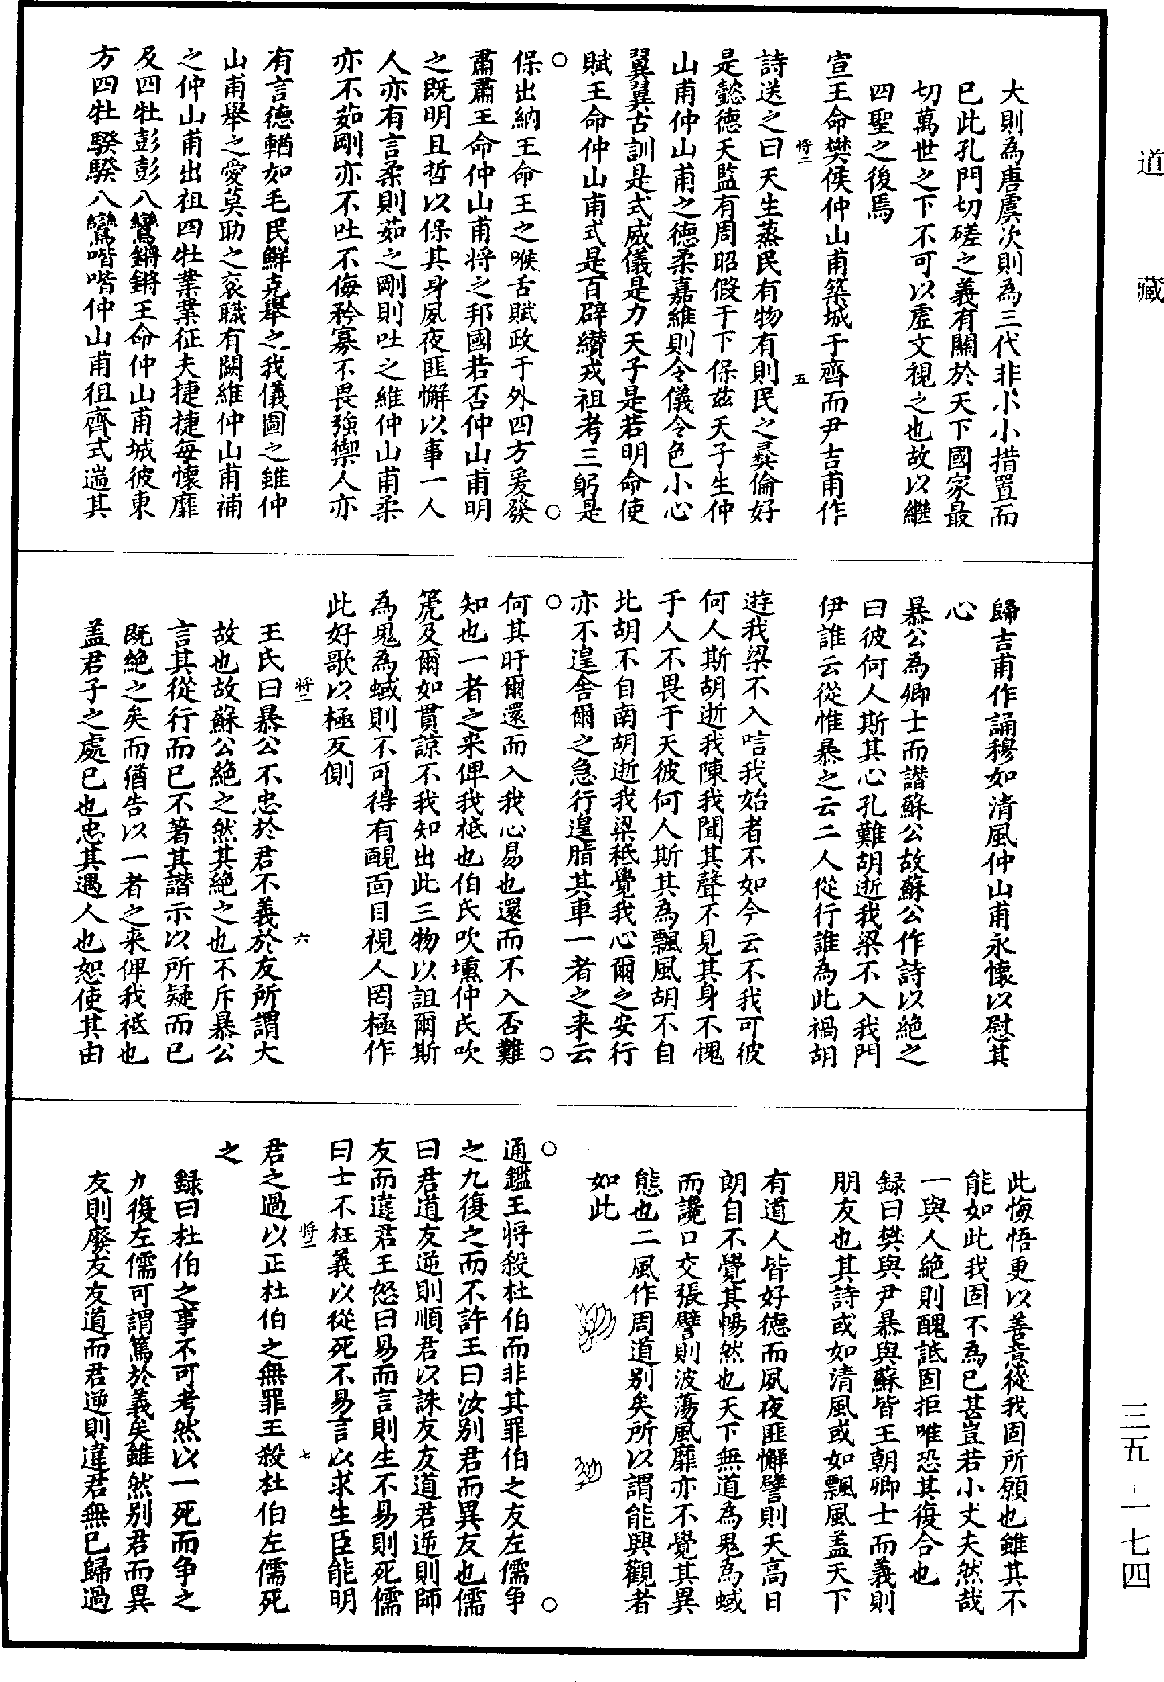 道藏
大則為唐虞次則為三代非小小措置而
已此孔門切磋之義有關於天下國家最
切萬世之下不可以虛文視之也故以繼
四聖之後焉
宣王命樊侯仲山甫築城于齊而尹吉甫作
將二 五
詩送之曰天生蒸民有物有則民之彝倫好
是懿德天監有周昭假于下保茲天子生仲
山甫仲山甫之德柔嘉維則令儀令色小心
翼翼古訓是式威儀是力天子是若明命使
賦王命仲山甫式是百辟纘戎祖考三躬是
保出納王命王之喉舌賦政于外四方爰發
肅肅王命仲山甫將之邦國若否仲山甫明
之既明且哲以保其身夙夜匪懈以事一人
人亦有言柔則茹之剛則吐之維仲山甫柔
亦不茹剛亦不吐不侮矜寡不畏強禦人亦
有言德輶如毛民鮮克舉之我儀圖之維仲
山甫舉之愛莫助之袞職有闕維仲山甫補
之仲山甫出祖四牡業業征夫捷捷每懷靡
及四牡彭彭八鸞鏘鏘王命仲山甫城彼東
方四牡騤騤八鸞喈喈仲山甫徂齊式遄其
歸吉甫作誦穆如清風仲山甫永懷以慰其
心
暴公為卿士而譖蘇公故蘇公作詩以絕之
曰彼何人斯其心孔難胡逝我梁不入我門
伊誰云從惟暴之云二人從行誰為此禍胡
逝我梁不入唁我始者不如今云不我可彼
何人斯胡逝我陳我聞其聲不見其身不愧
于人不畏于天彼何人斯其為飄風胡不自
北胡不自南胡逝我梁秪攪我心爾之安行
亦不遑舍爾之急行遑脂其車一者之來云
何其盱爾還而入我心易也還而不入否難
知也一者之來俾我柢也伯氏吹壎仲氏吹
篪及爾如貫諒不我知出此三物以詛爾斯
為鬼為蜮則不可得有靦面目視人罔極作
此好歌以極反側
將二 六
王氏曰暴公不忠於君不義於友所謂大
故也故蘇公絕之然其絕之也不斥暴公
言其從行而已不著其譖示以所疑而已
既絕之矣而猶告以一者之來俾我祗也
蓋君子之處己也忠其遇人也恕使其由
此悔悟更以善意從我固所願也雖其不
能如此我固不為已甚豈若小丈夫然哉
一與人絕則醜詆固拒唯恐其復合也
録曰樊與尹暴與蘇皆王朝卿士而義則
朋友也其詩或如清風或如飄風蓋天下
有道人皆好德而夙夜匪懈譬則天高日
朗自不覺其暢然也天下無道為鬼為蜮
而讒口交張譬則波蕩風靡亦不覺其異
態也二風作周道別矣所以謂能興觀者
如此
通鑑王將殺杜伯而非其罪伯之友左儒爭
之九復之而不許王曰汝別君而異友也儒
曰君道友逆則順君以誅友友道君逆則師
友而違君王怒曰易而言則生不易則死儒
曰士不枉義以從死不易言以求生臣能明
將二 七
君之過以正杜伯之無罪王殺杜伯左儒死
之
録曰杜伯之事不可考然以一死而争之
九復左儒可謂篤於義矣雖然別君而異
友則廢友友道而君逆則違君無已歸過
三五－一七四